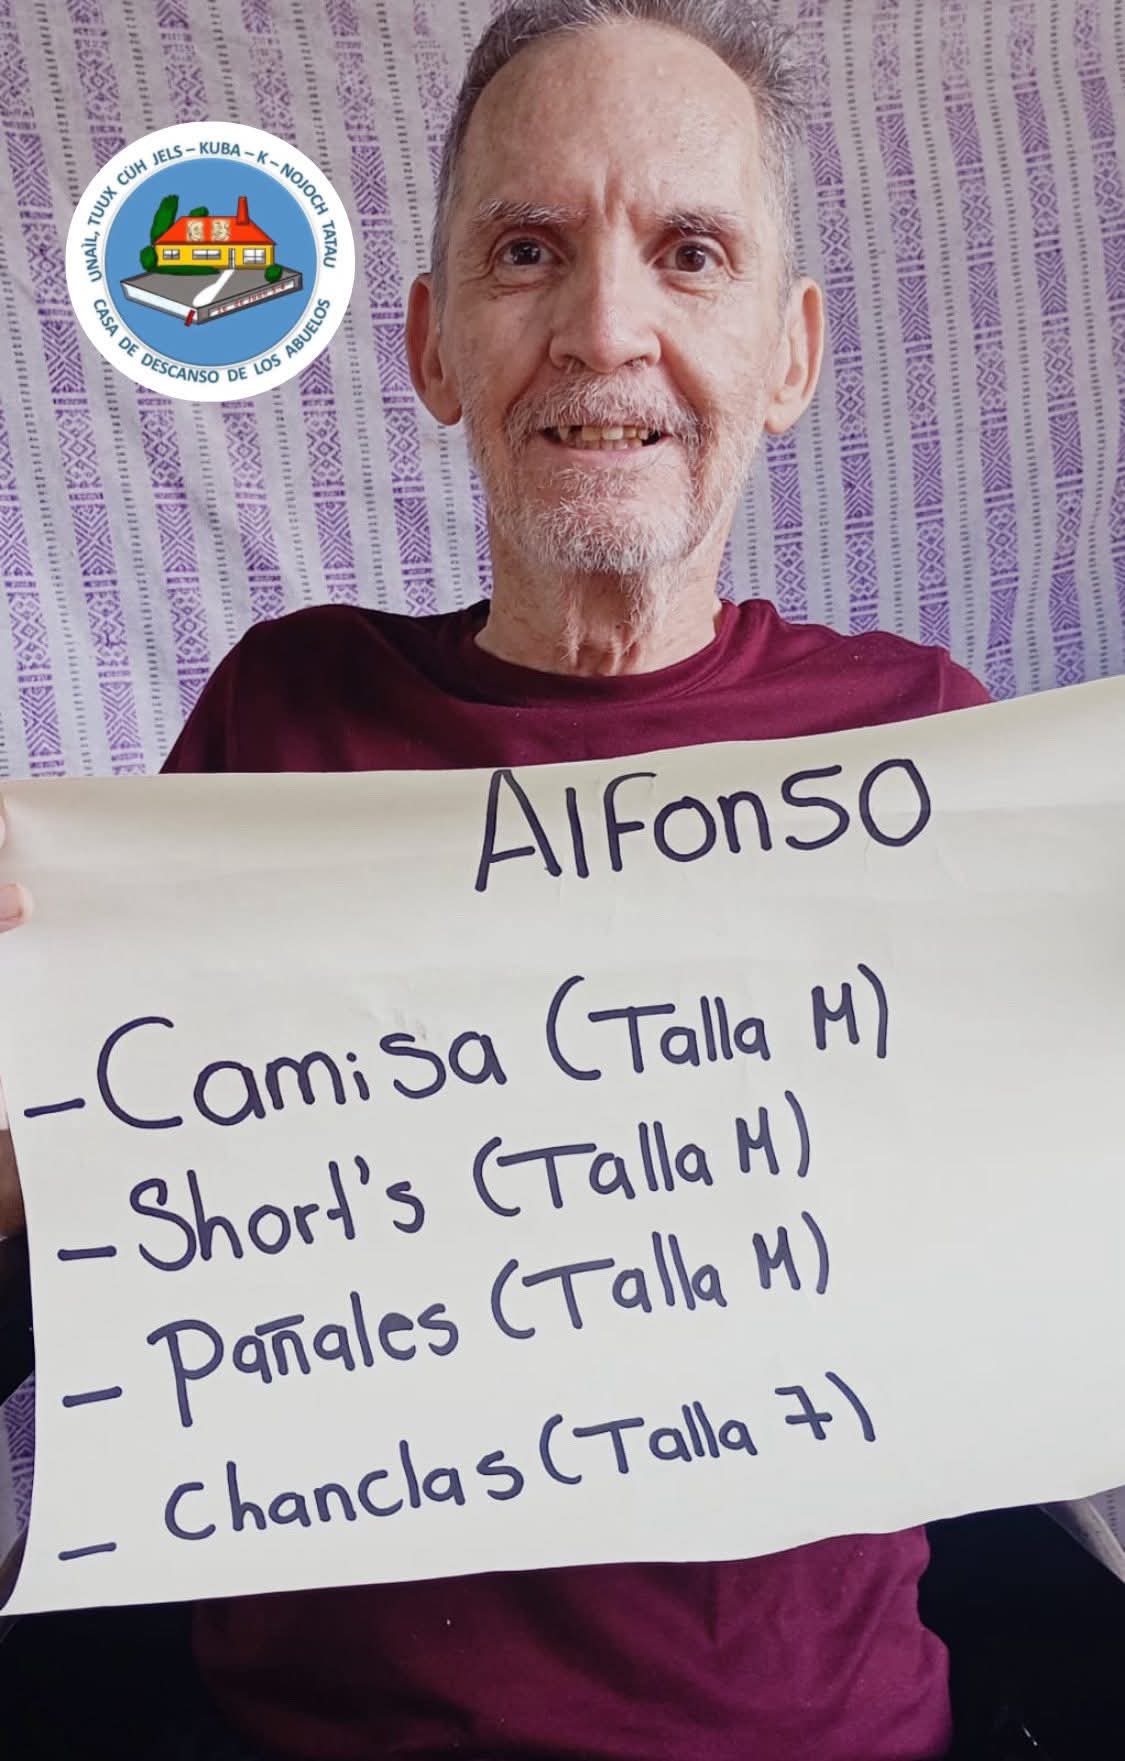 UNAÌL, TUUX CÙH JELS – KUBA – K – NOJOCH TATAU
CASA DE DESCANSO DE LOS ABUELOS
Alfonso
- Camisa (Talla M)
- Short's (Talla M)
- Pañales (Talla M)
- Chanclas (Talla 7)